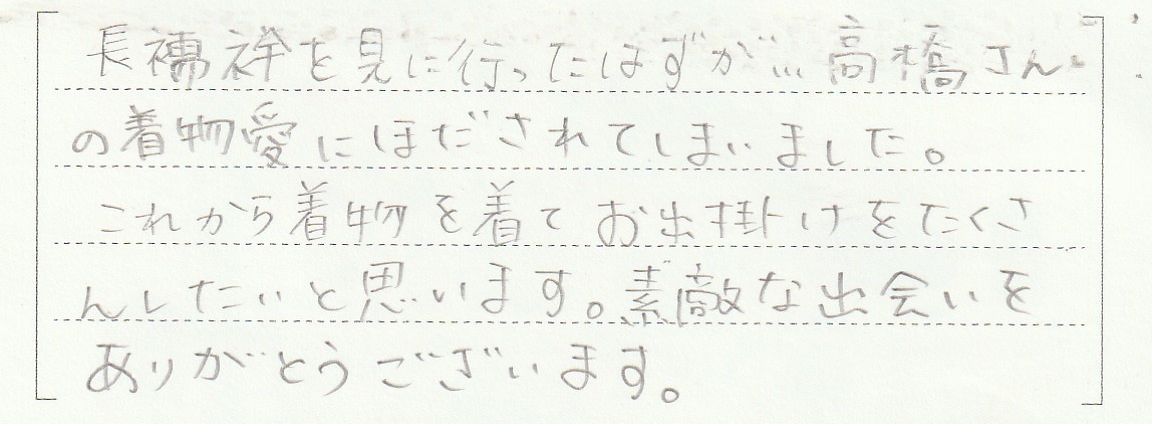 長襦袢を見に行ったはずが…高橋さん
の着物愛にほだされてしまいました。
これから着物を着てお出掛けをたくさ
んしたいと思います。素敵な出会いを
ありがとうございます。